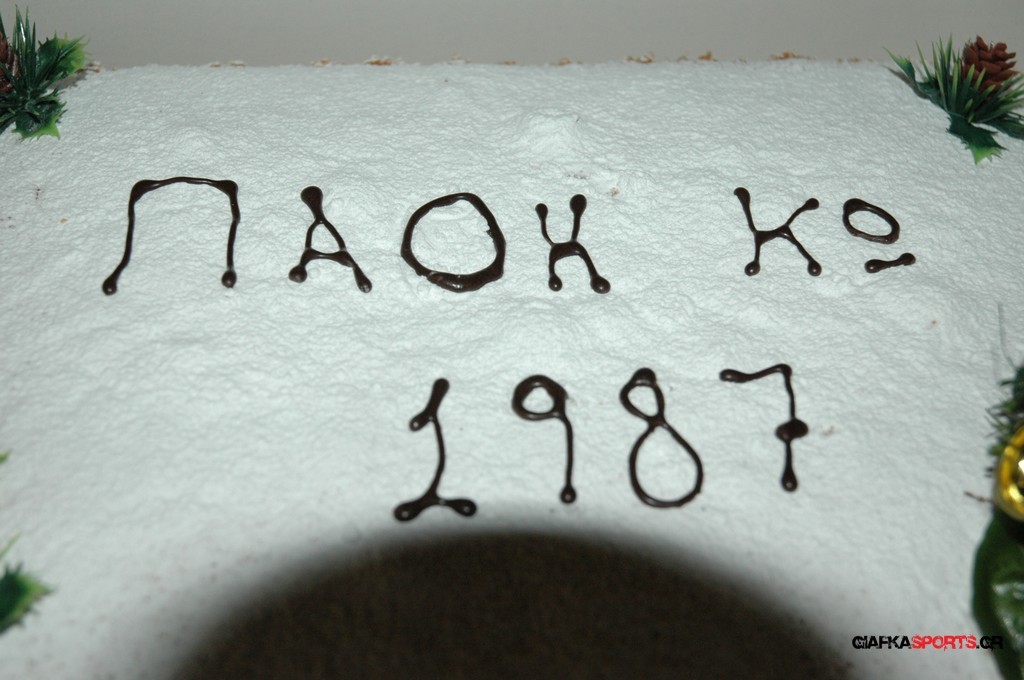 ΠΑΟΚ Κο
1987
GIAFKASPORTS.GR